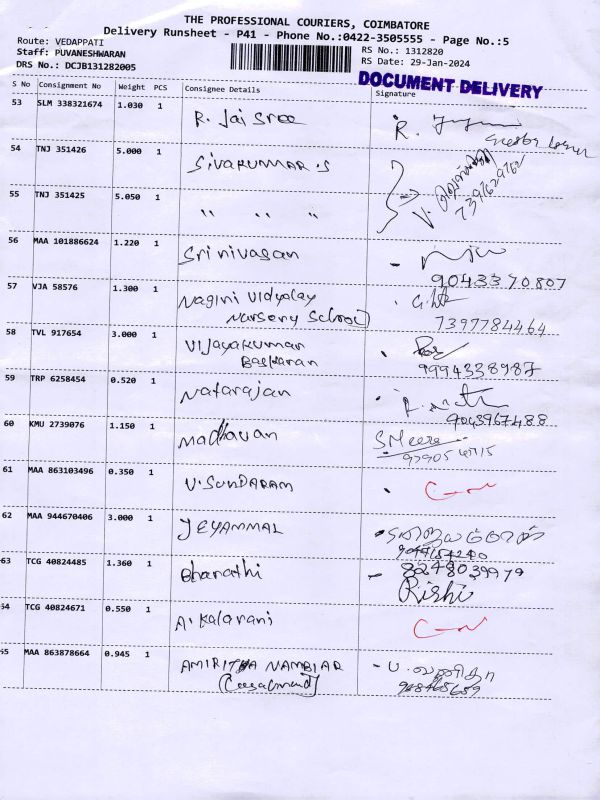 THE PROFESSIONAL COURIERS, COIMBATORE
Delivery Runsheet - P41 - Phone No.:0422-3505555 - Page No.:5
Route: VEDAPPATI
Staff: PUVANESHWARAN
DRS No.: DCJB131282005
RS No.: 1312820
RS Date: 29-Jan-2024
DOCUMENT DELIVERY
S No Consignment No Weight PCS Consignee Details Signature
53 SLM 338321674 1.030 1 R. Jai Sree R.
54 TNJ 351426 5.000 1 Sivakummar.S
7397629762
55 TNJ 351425 5.050 1 " " "
56 MAA 101886624 1.220 1 Srinivasan
9043370807
57 VJA 58576 1.300 1 Nagini Vidyalay
Nursery School
7397784464
58 TVL 917654 3.000 1 Vijayakumar
Baskaran
9994338987
59 TRP 6258454 0.520 1 Natarajan
9043967488
60 KMU 2739076 1.150 1 Madhavan S.Meera
61 MAA 863103496 0.350 1 V.SUNDARAM
62 MAA 944670406 3.000 1 JEYAMMAL
63 TCG 40824485 1.360 1 Bharathi 8248039979
Rishi
64 TCG 40824671 0.550 1 A. Kalarani
65 MAA 863878664 0.945 1 AMIRITHA NAMBIAR ப. வனிதா